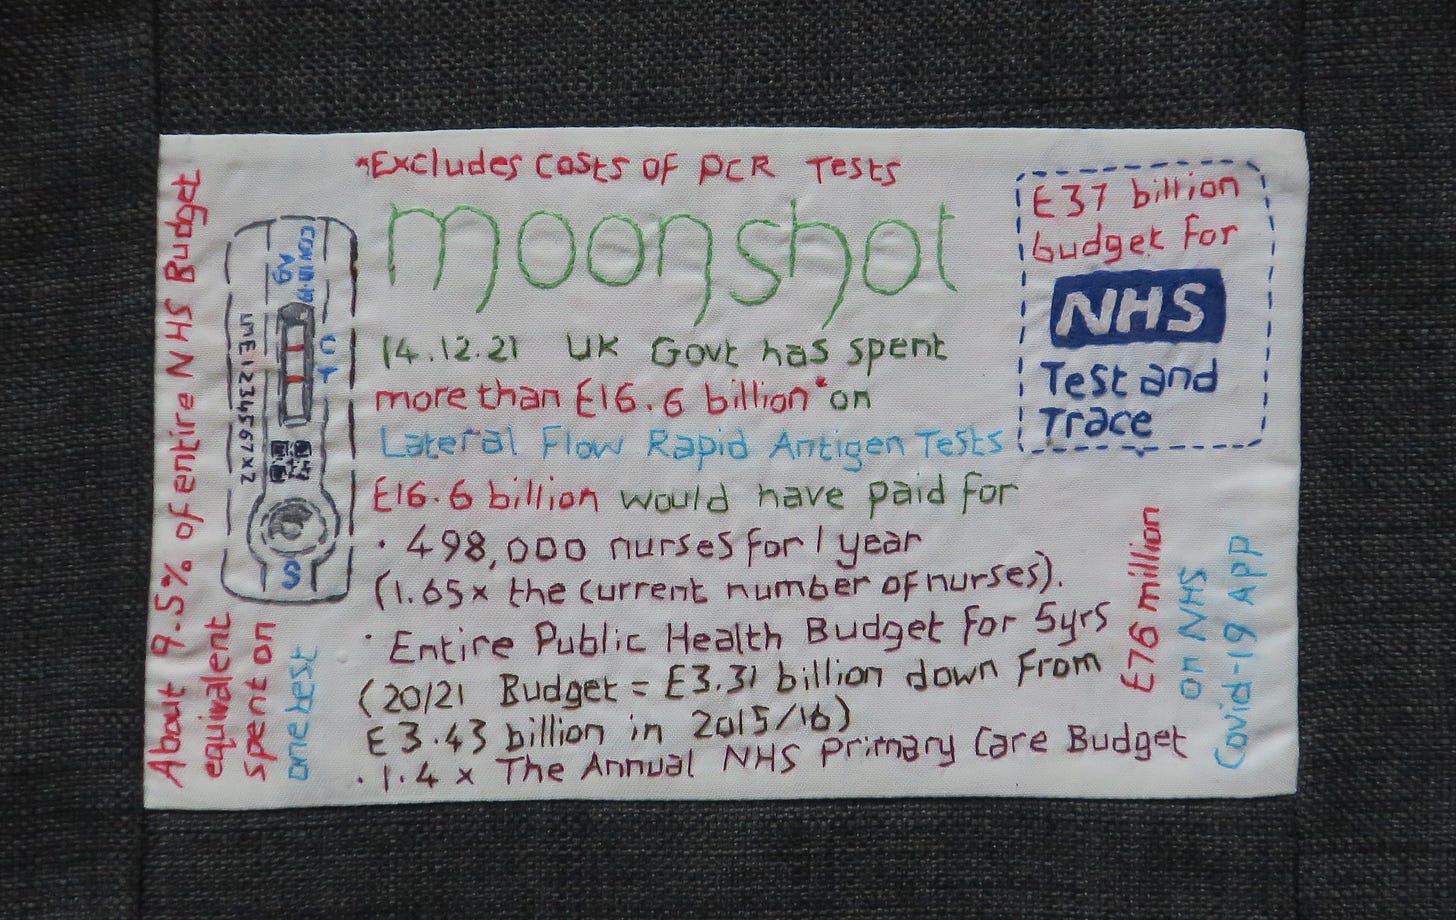 *Excludes Costs of PCR Tests
moonshot
14.12.21 UK Govt has spent
more than £16.6 billion* on
Lateral Flow Rapid Antigen Tests
£16.6 billion would have paid for
• 498,000 nurses for 1 year
(1.65x the current number of nurses).
• Entire Public Health Budget for 5yrs
(20/21 Budget = £3.31 billion down from
£3.43 billion in 2015/16)
• 1.4 x The Annual NHS Primary Care Budget
£37 billion
budget for
NHS
Test and
Trace
£76 million
on NHS
Covid-19 APP
About 9.5% of entire NHS Budget
equivalent
spent on
one test
COVID-19
Ag
C
T
LME1234567X2
S